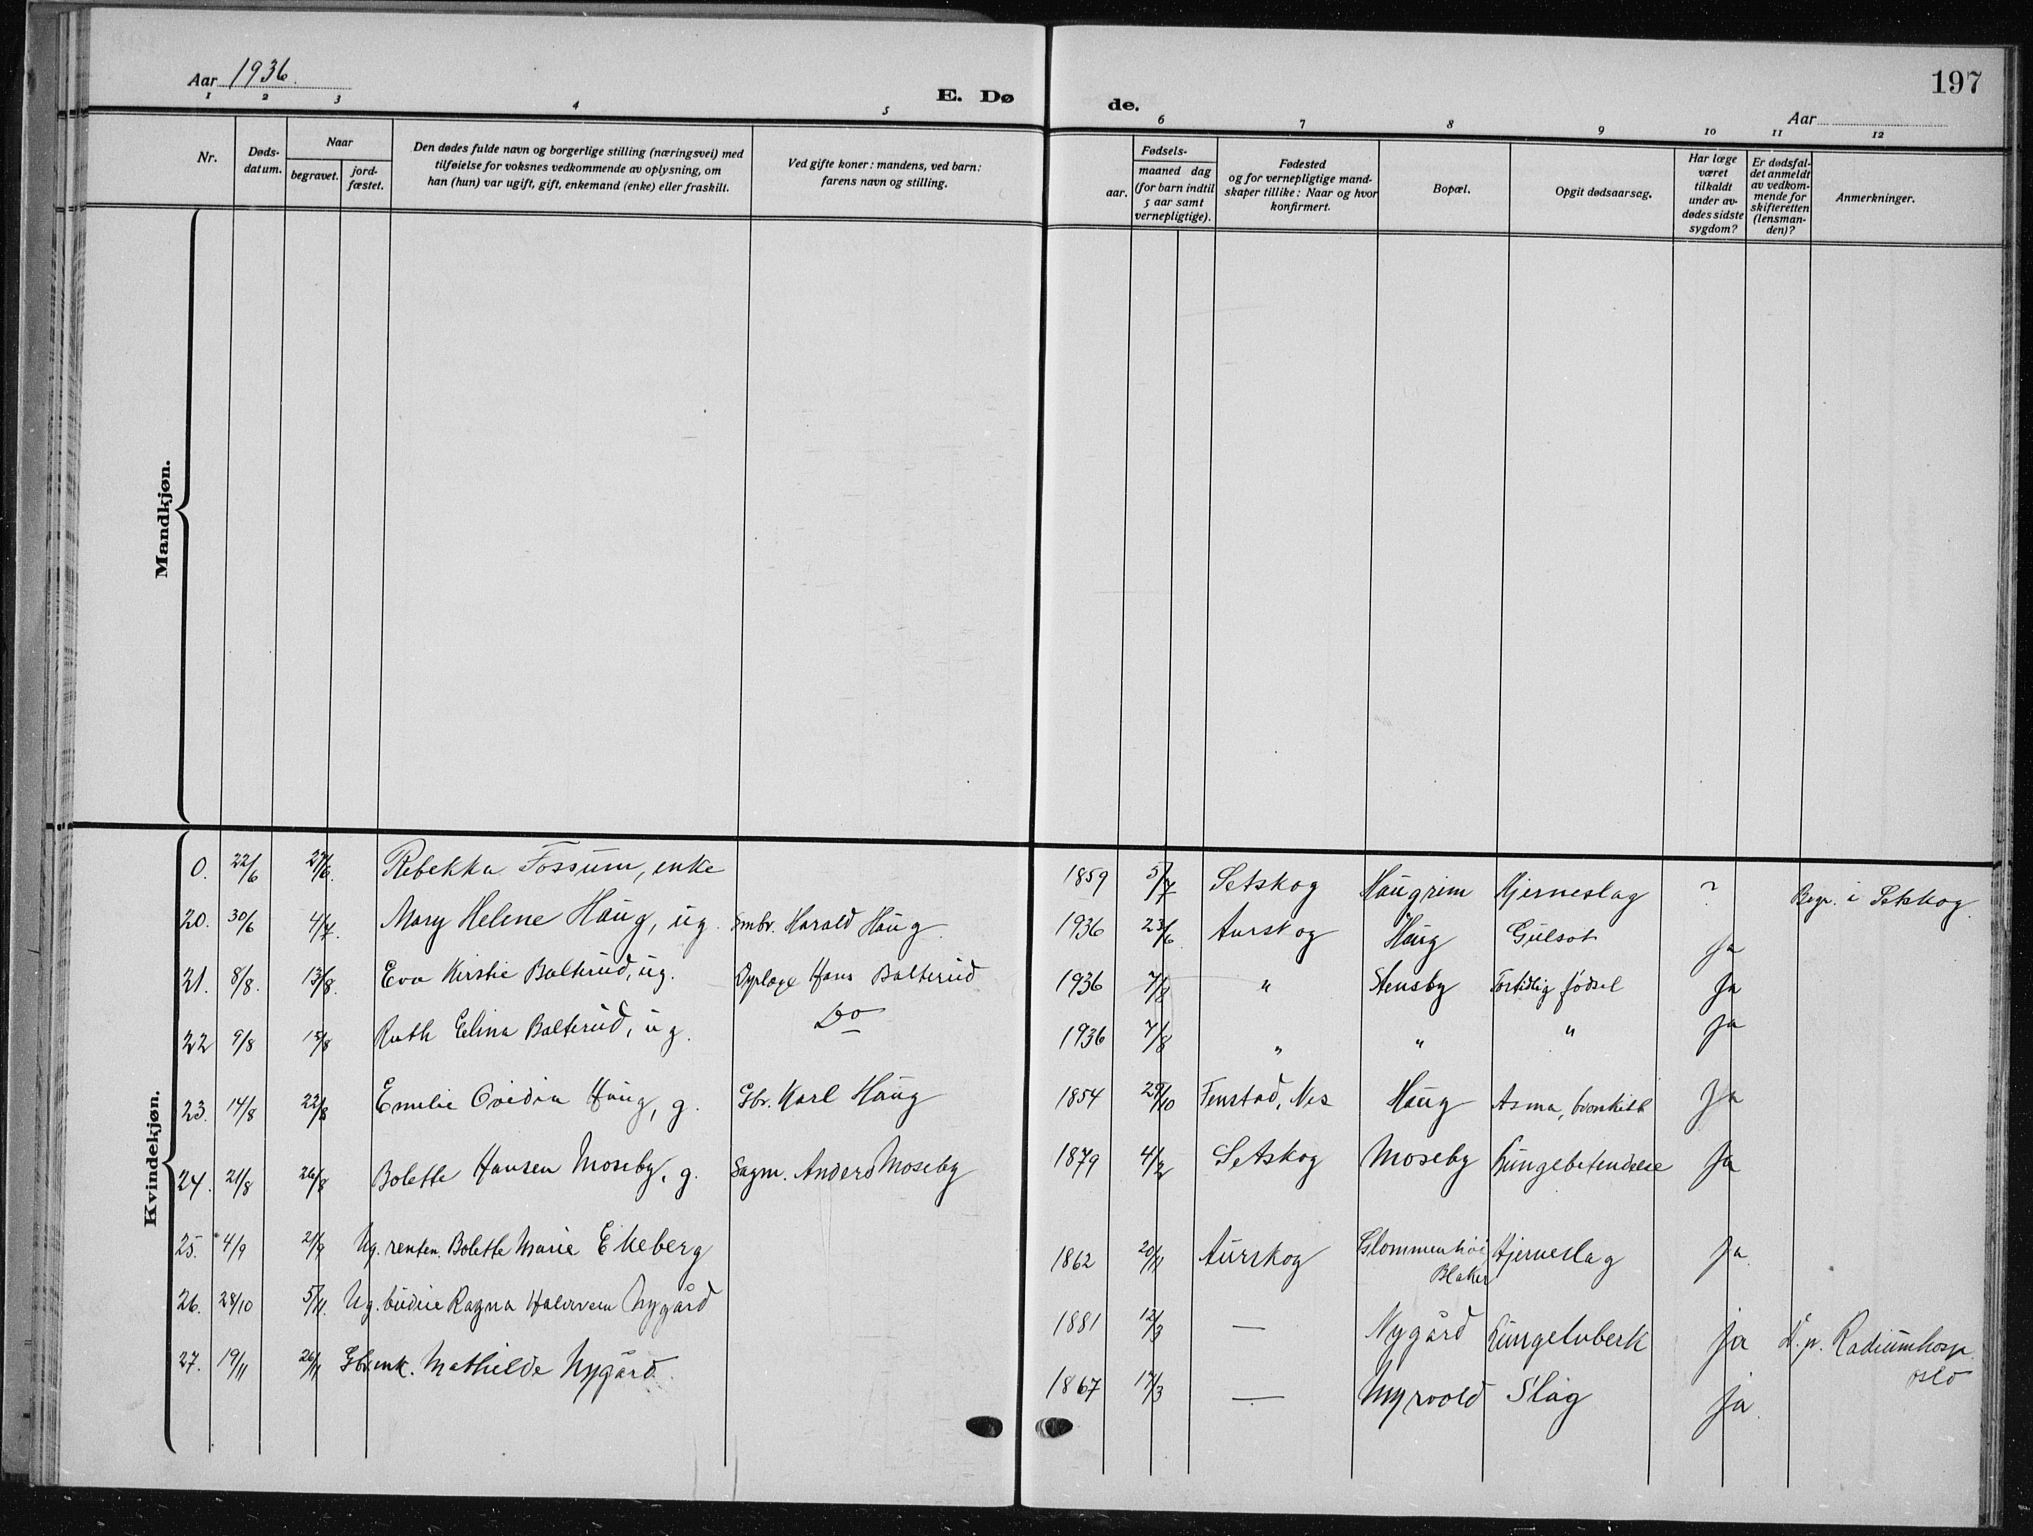 Aar 1936.
E. Dø
de.
Aar
197
1 2 3 4 5 6 7 8 9 10 11 12
Nr.
Døds-
datum.
Naar
begravet.
jord-
fæstet.
Den dødes fulde navn og borgerlige stilling (næringsvei) med
tilføielse for voksnes vedkommende av oplysning, om
han (hun) var ugift, gift, enkemand (enke) eller fraskilt.
Ved gifte koner: mandens, ved barn:
farens navn og stilling.
Fødsels-
aar.
maaned dag
(for barn indtil
5 aar samt
vernepligtige).
Fødested
og for vernepligtige mand-
skaper tillike: Naar og hvor
konfirmert.
Bopæl.
Opgit dødsaarsag.
Har læge
været
tilkaldt
under av-
dødes sidste
sygdom?
Er dødsfal-
det anmeldt
av vedkom-
mende for
skifteretten
(lensman-
den)?
Anmerkninger.
Mandkjøn.
Kvindekjøn.
0. 22/6 27/6. Rebekka Fossum, enke 1859 5/7 Setskog Haugrim Hjerneslag ? Begr. i Setskog.
20. 30/6 4/7. Mary Helene Haug, ug. Smbr. Harald Haug 1936 23/6 Aurskog Haug Gulsot Ja
21. 8/8. 13/8. Eva Kirstie Balterud, ug. Hans Balterud 1936 7/8 " Stensby Fortidlig fødsel Ja
22 9/8 15/8 Ruth Elina Balterud, ug. Do 1936 7/8 " " " Ja
23. 14/8 22/8 Emelie Ovidia Haug, g. Gbr. Karl Haug 1854 29/10 Fenstad, Nes Haug Asma, bronkitt Ja
24. 21/8 26/8 Bolette Hansen Moseby, g. Sagm. Anders Moseby 1879 4/2 Setskog Moseby Lungebetendelse Ja
25. 4/9 21/9 Ug. renten. Bolette Marie Ekeberg 1862 20/11 Aurskog Glommenhøi Blaker Hjerneslag Ja
26. 28/10 5/11. Ug. budeie Ragna Halvorsen Nygård 1881 12/3 — Nygård Lungetuberk Ja D. p. Radiumhosp. Oslo
27. 19/11 26/11 Gbrenk. Mathilde Nygård. 1867 17/3 — Myrvold Slag Ja